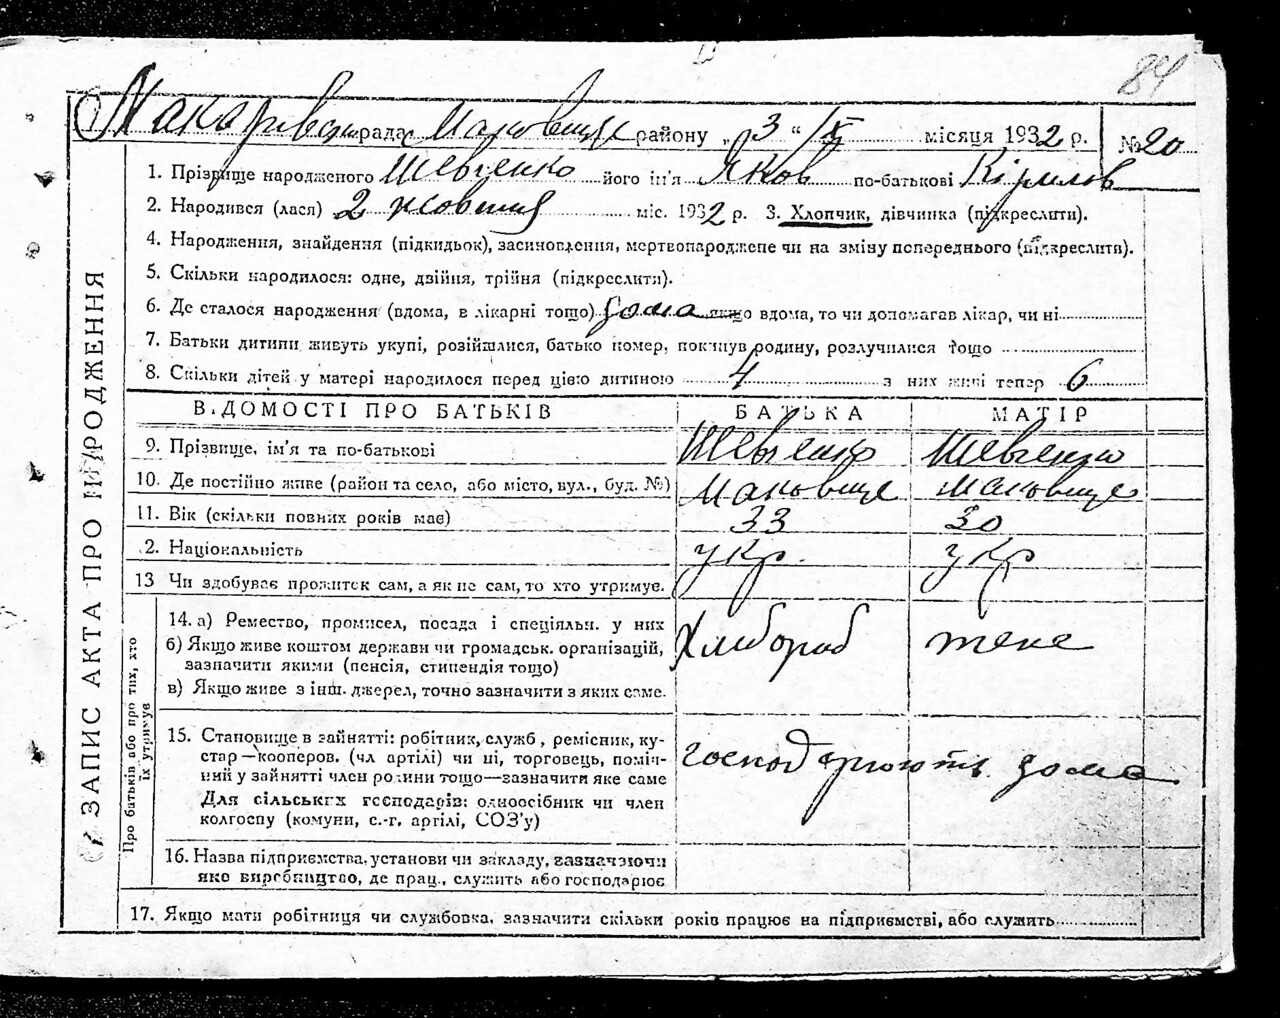 84
Макарівськ рада Маковище району „3“ /X місяця 1932 р. № 20
1. Прізвище народженого Шевченко його ім'я Яков по-батькові Кірилов
2. Народився (лася) 2 жовтня міс. 1932 р. 3. Хлопчик, дівчинка (підкреслити).
4. Народження, знайдення (підкидьок), засиновлення, мертвонароджене чи на зміну попереднього (підкреслити).
5. Скільки народилося: одне, двійня, трійня (підкреслити).
6. Де сталося народження (вдома, в лікарні тощо) дома якщо вдома, то чи допомагав лікар, чи ні
7. Батьки дитини живуть укупі, розійшлися, батько помер, покинув родину, розлучилися тощо
8. Скільки дітей у матері народилося перед цією дитиною 4 з них живі тепер 6
ВІДОМОСТІ ПРО БАТЬКІВ БАТЬКА МАТІР
9. Прізвище, ім'я та по-батькові Шевченко Шевченко
10. Де постійно живе (район та село, або місто, вул., буд. №) Маковище Маковище
11. Вік (скільки повних років має) 33 30
2. Національність укр. укр
13 Чи здобуває прожиток сам, а як не сам, то хто утримує.
14. а) Ремество, промисел, посада і спеціяльн. у них
б) Якщо живе коштом держави чи громадськ. організацій, Хлибороб жене
зазначити якими (пенсія, стипендія тощо)
в) Якщо живе з інш. джерел, точно зазначити з яких саме.
15. Становище в зайнятті: робітник, служб, ремісник, ку-
стар—кооперов. (чл артілі) чи ні, торговець, поміч- господарюють дома
ний у зайнятті член родини тощо—зазначити яке саме
Для сільських господарів: одноосібник чи член
колгоспу (комуни, с.-г. артілі, СОЗ'у)
16. Назва підприємства, установи чи закладу, зазначаючи
яке виробництво, де прац., служить або господарює
17. Якщо мати робітниця чи службовка, зазначити скільки років працює на підприємстві, або служить
ЗАПИС АКТА ПРО НАРОДЖЕННЯ
Про батьків або про тих, хто
їх утримує